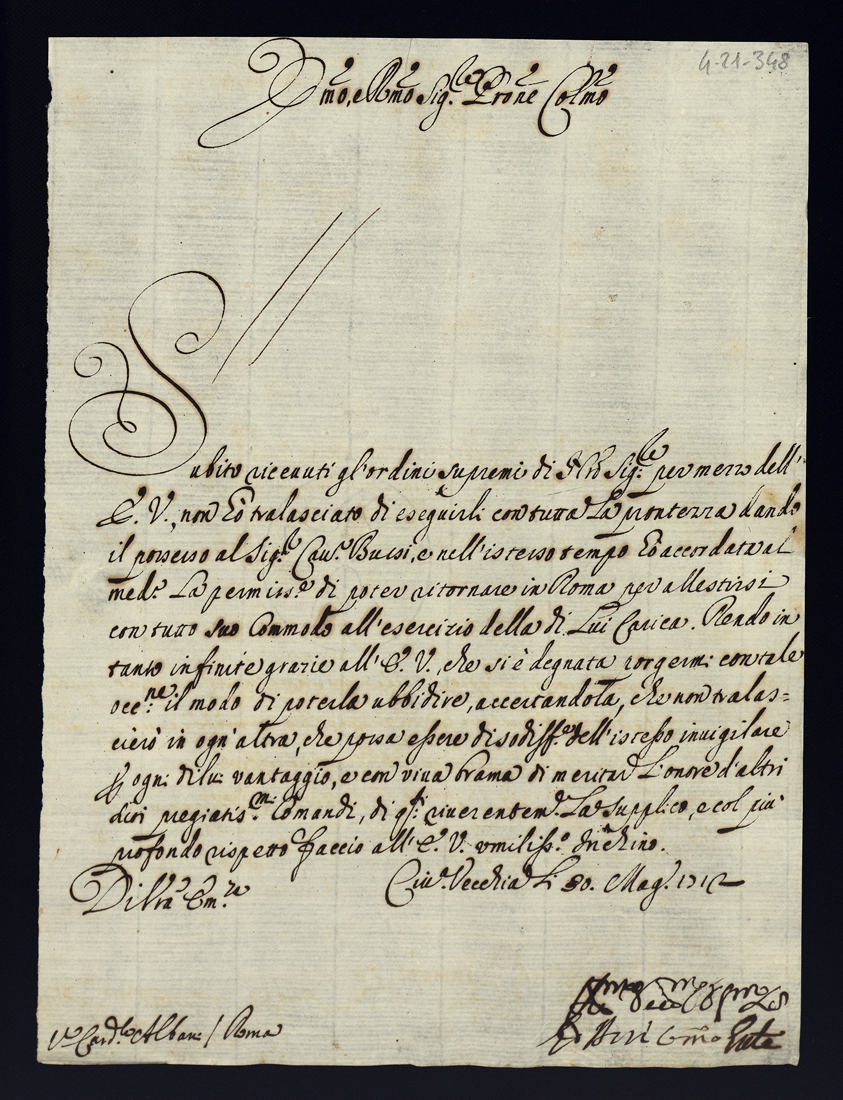 4-21-348
Emo, e Rmo Sig.re Prone Colmo
Subito ricevuti gl'ordini supremi di Nro Sig.re per mezzo dell'
E. V., non hò tralasciato di eseguirli con tutta La prontezza dando
il possesso al Sig.r Cav.e Bussi, e nell'istesso tempo hò accordata al
med.o La permiss.e di poter ritornare in Roma per allestirsi
con tutto suo Commodo all'esercizio della di Lui Carica. Rendo in
tanto infinite grazie all'E. V., che si è degnata porgermi con tale
occ.ne il modo di poterla ubbidire, accertandola, che non tralas=
cierò in ogn'altra, che possa essere di sodisf.e dell'istesso invigilare
ogni di lui vantaggio, e con viva brama di meritar L'onore d'altri
suoi pregiatis.mi Comandi, di q.ti riverentem.e La supplico, e col più
profondo rispetto faccio all'E. V. umiliss.o inchino.
Di Vra Em.za
Civ.a Vecchia Li 30. Mag.o 1712
S.r Card.le Albani / Roma